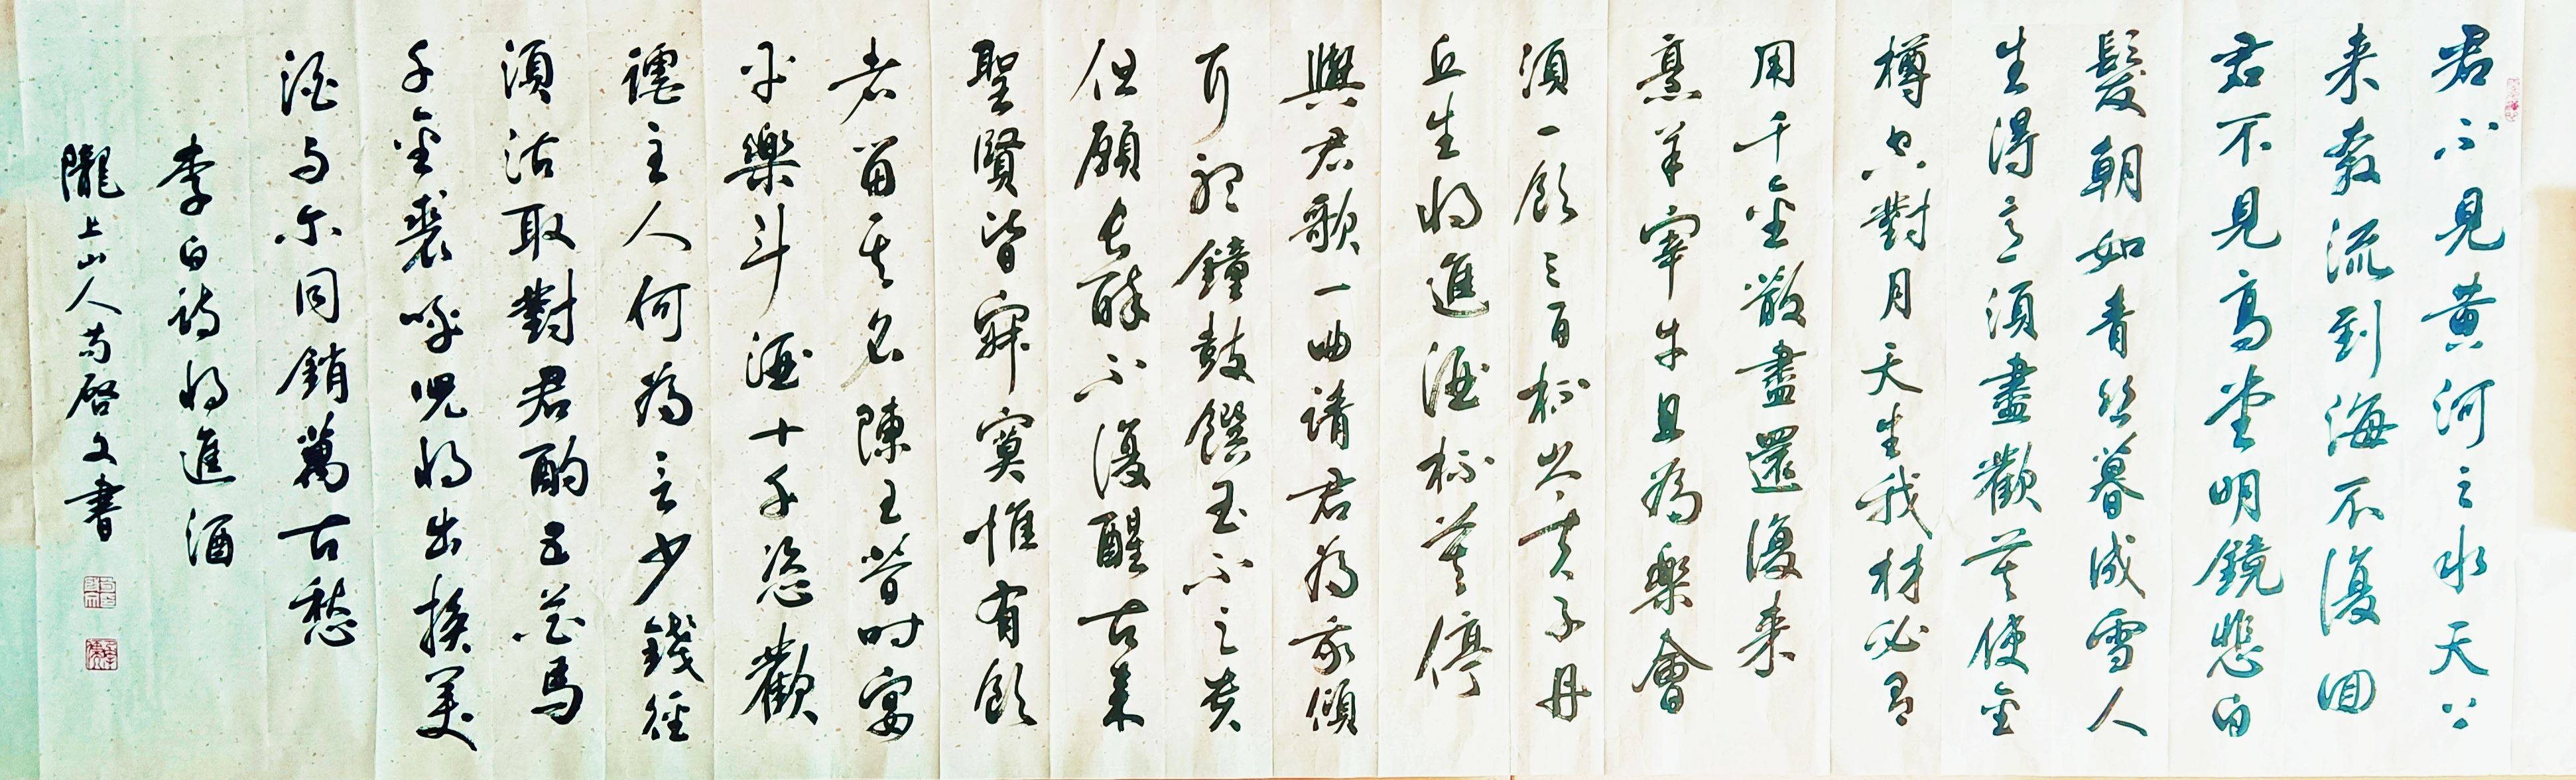 君不見黃河之水天上
来奔流到海不復回
君不見高堂明鏡悲白
髮朝如青絲暮成雪人
生得意須盡歡莫使金
樽空對月天生我材必有
用千金散盡還復来
烹羊宰牛且為樂會
須一飲三百杯岑夫子丹
丘生将進酒杯莫停
與君歌一曲請君為我傾
耳聽鐘鼓饌玉不足貴
但願長醉不復醒古来
聖賢皆寂寞惟有飲
者留其名陳王昔时宴
平樂斗酒十千恣歡
謔主人何為言少錢徑
須沽取對君酌五花馬
千金裘呼児将出換美
酒与尔同銷萬古愁
李白詩将進酒
隴上山人苟啓文書